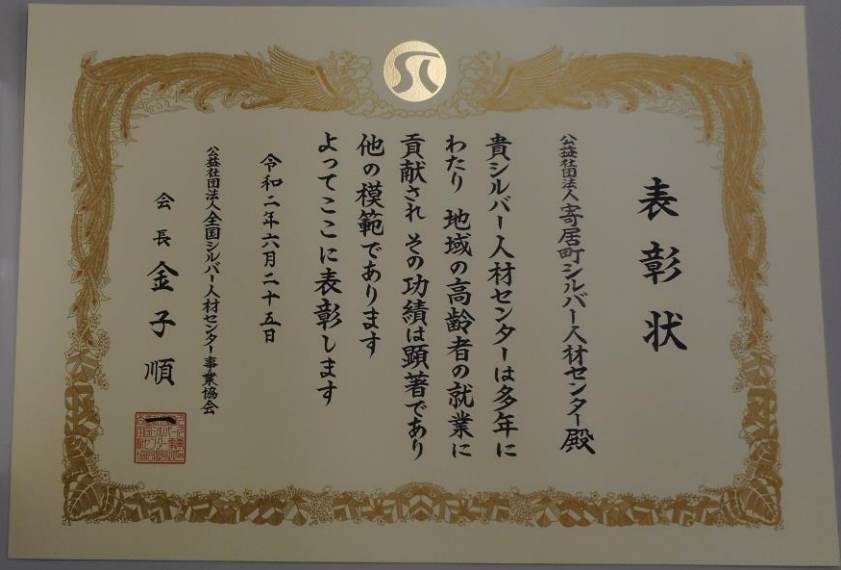 表彰状
公益社団法人寄居町シルバー人材センター殿
貴シルバー人材センターは多年に
わたり 地域の高齢者の就業に
貢献され その功績は顕著であり
他の模範であります
よってここに表彰します
令和二年六月二十五日
公益社団法人全国シルバー人材センター事業協会
会長 金子順一